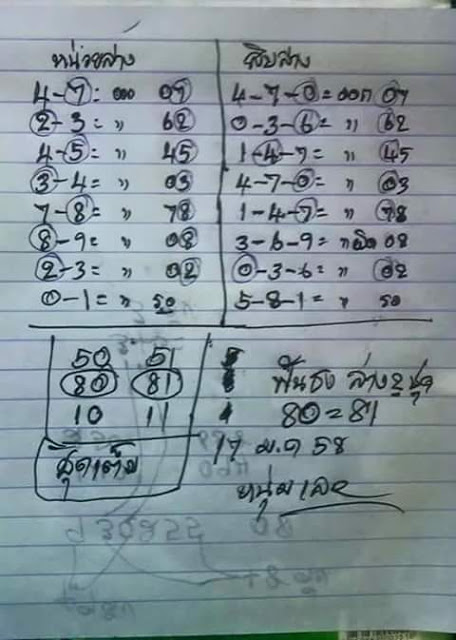 หน่วยล่าง สิบล่าง
4-7= ออก 07 4-7-0= ออก 07
2-3= " 62 0-3-6= " 62
4-5= " 45 1-4-7= " 45
3-4= " 03 4-7-0= " 03
7-8= " 78 1-4-7= " 78
8-9= " 08 3-6-9= " ผิด 08
2-3= " 02 0-3-6= " 02
0-1= " 50 5-8-1= " 50
50 51 5
80 81 8 ฟันธง ล่าง 2 ชุด
10 11 1 80=81
ชุดเต็ม 17 ม.ค 58
หนุ่มเลย